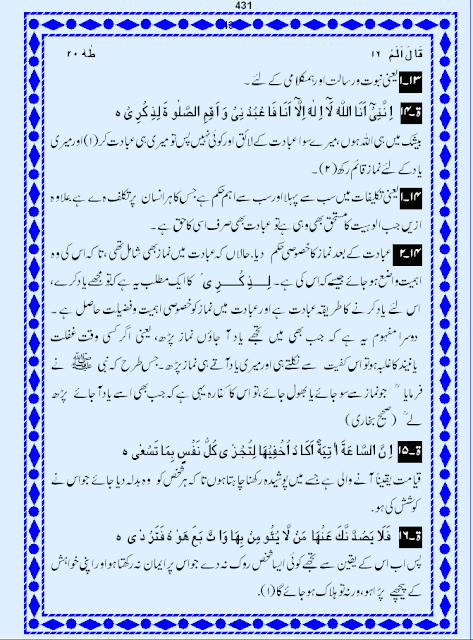 431
قَالَ اَلَمْ ١٦ طٰهٰ ٢٠
١٣۔١ یعنی نبوت و رسالت اور ہمکلامی کے لئے۔
ة۔١٤ اِنَّنِیْۤ اَنَا اللّٰهُ لَاۤ اِلٰهَ اِلَّاۤ اَنَا فَاعْبُدْنِیْ وَ اَقِمِ الصَّلٰوةَ لِذِكْرِیْ ه
بیشک میں ہی اللہ ہوں، میرے سوا عبادت کے لائق اور کوئی نہیں پس تو میری ہی عبادت کر (١) اور میری
یاد کے لئے نماز قائم رکھ (٢)۔
١٤۔١ یعنی تکلیفات میں سب سے پہلا اور سب سے اہم حکم ہے جس کا ہر انسان پر تکلف دے ہے علاوہ
ازیں جب الوہیت کا مستحق بھی وہی ہے تو عبادت بھی صرف اسی کا حق ہے۔
١٤۔٢ عبادت کے بعد نماز کا خصوصی حکم دیا۔ حالاں کہ عبادت میں نماز بھی شامل تھی، تاکہ اس کی وہ
اہمیت واضح ہو جائے جیسے کہ اس کی ہے۔ لِذِكْرِی کا ایک مطلب یہ ہے کہ تو مجھے یاد کرے،
اس لئے یاد کرنے کا طریقہ عبادت ہے اور عبادت میں نماز کو خصوصی اہمیت و فضیلت حاصل ہے۔
دوسرا مفہوم یہ ہے کہ جب بھی میں تجھے یاد آ جاؤں نماز پڑھ، یعنی اگر کسی وقت غفلت
یا نیند کا غلبہ ہو تو اس کفیت سے نکلتے ہی اور میری یاد آتے ہی نماز پڑھ۔ جس طرح کہ نبی ﷺ نے
فرمایا " جو نماز سے سو جائے یا بھول جائے، تو اس کا کفارہ یہی ہے کہ جب بھی اسے یاد آ جائے پڑھ
لے " (صحیح بخاری)
ة۔١٥ اِنَّ السَّاعَةَ اٰتِیَةٌ اَكَادُ اُخْفِیْهَا لِتُجْزٰی كُلُّ نَفْسٍۭ بِمَا تَسْعٰی ه
قیامت یقیناً آنے والی ہے جسے میں پوشیدہ رکھنا چاہتا ہوں تاکہ ہر شخص کو وہ بدلہ دیا جائے جو اس نے
کوشش کی ہو۔
ة۔١٦ فَلَا یَصُدَّنَّكَ عَنْهَا مَنْ لَّا یُئْو مِنُ بِهَا وَاتَّبَعَ هَوٰىهُ فَتَرْدٰی ه
پس اب اس کے یقین سے تجھے کوئی ایسا شخص روک نہ دے جو اس پر ایمان نہ رکھتا ہو اور اپنی خواہش
کے پیچھے پڑا ہو، ورنہ تو ہلاک ہو جائے گا (١)۔